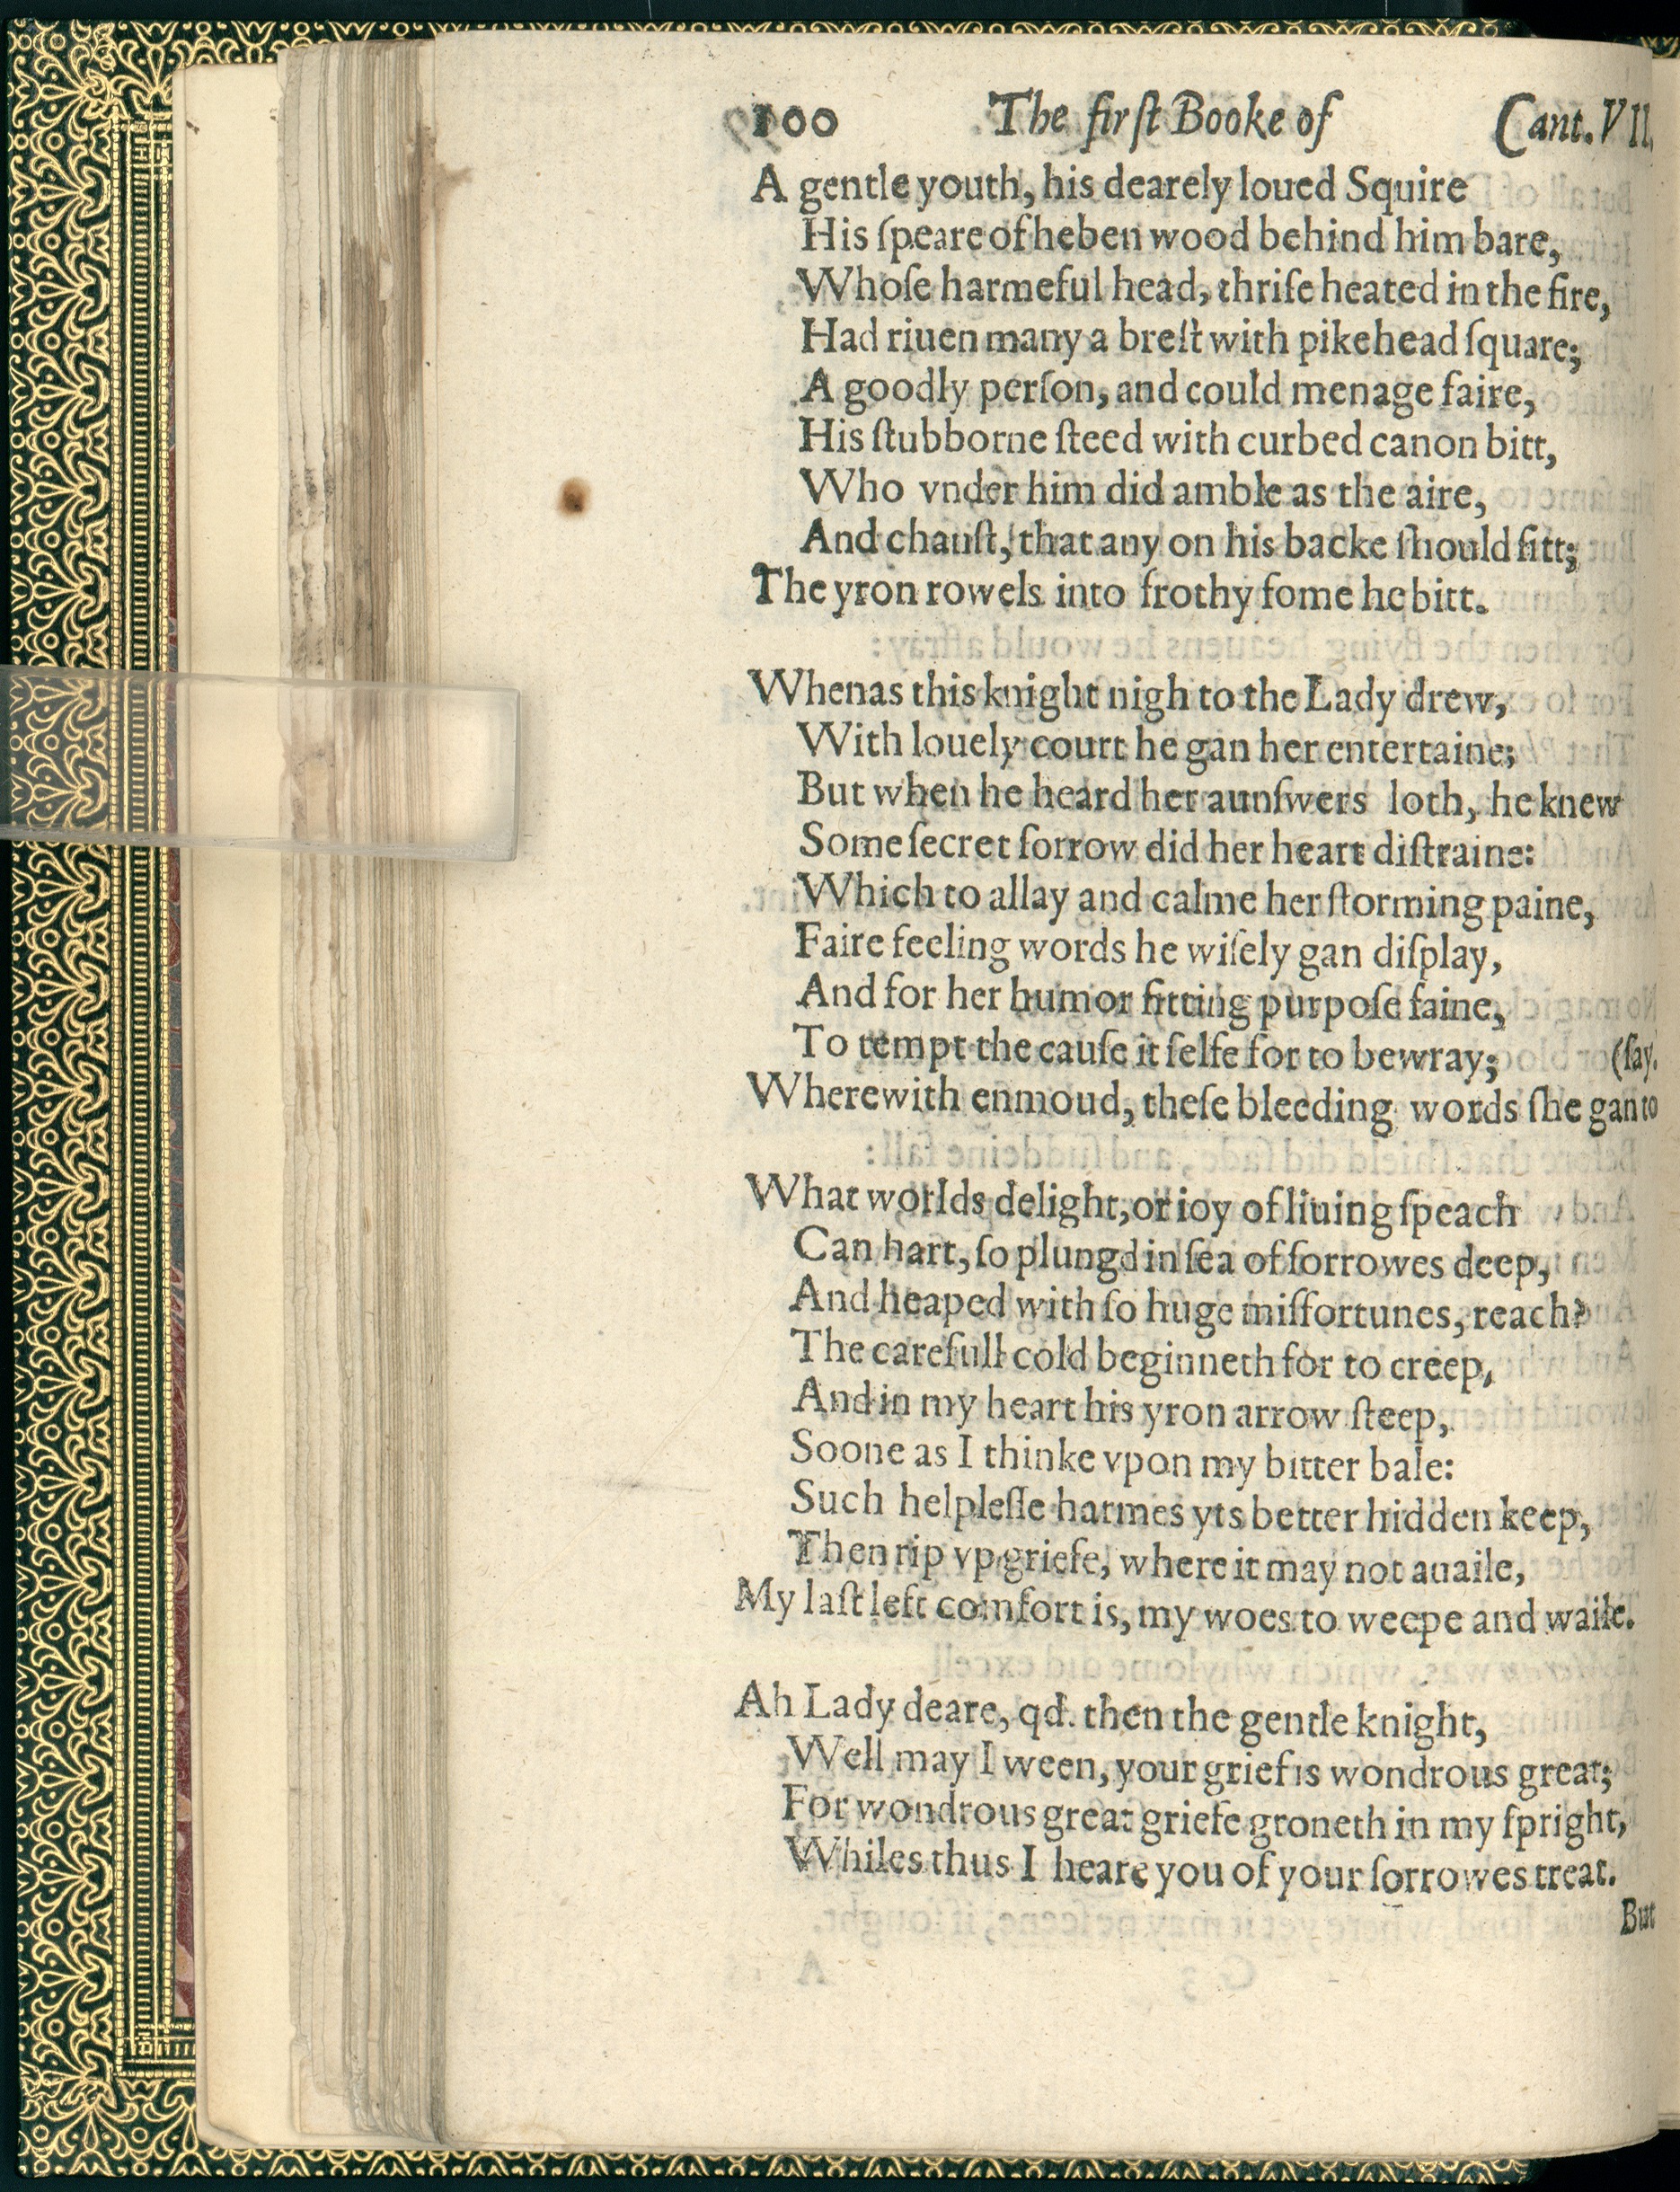 100 The firſt Booke of Cant. VII.
A gentle youth, his dearely loued Squire
His ſpeare of heben wood behind him bare,
Whoſe harmeful head, thriſe heated in the fire,
Had riuen many a breſt with pikehead ſquare;
A goodly perſon, and could menage faire,
His ſtubborne ſteed with curbed canon bitt,
Who vnder him did amble as the aire,
And chauſt, that any on his backe ſhould ſitt;
The yron rowels into frothy fome he bitt.
Whenas this knight nigh to the Lady drew,
With louely court he gan her entertaine;
But when he heard her aunſwers loth, he knew
Some ſecret ſorrow did her heart diſtraine:
Which to allay and calme her ſtorming paine,
Faire feeling words he wiſely gan diſplay,
And for her humor fitting purpoſe faine,
To tempt the cauſe it ſelfe for to bewray; (ſay.
Wherewith enmoud, theſe bleeding words ſhe gan to
What worlds delight, or ioy of liuing ſpeach
Can hart, ſo plungd in ſea of ſorrowes deep,
And heaped with ſo huge miſfortunes, reach?
The carefull cold beginneth for to creep,
And in my heart his yron arrow ſteep,
Soone as I thinke vpon my bitter bale:
Such helpleſſe harmes yts better hidden keep,
Then rip vp griefe, where it may not auaile,
My laſt left comfort is, my woes to weepe and waile.
Ah Lady deare, qd. then the gentle knight,
Well may I ween, your grief is wondrous great;
For wondrous great griefe groneth in my ſpright,
Whiles thus I heare you of your ſorrowes treat.
But